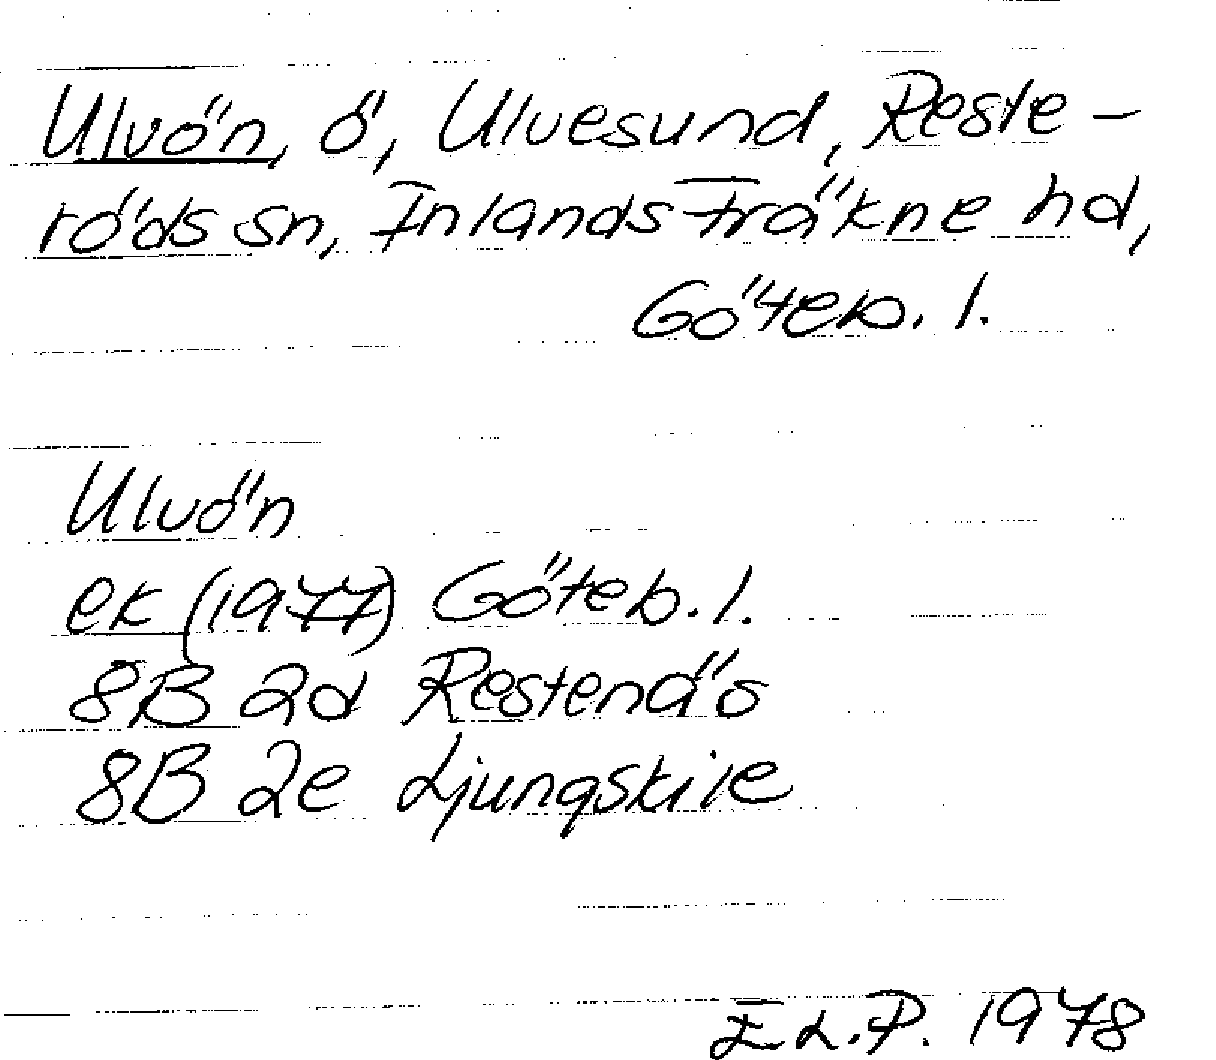 Ulvön, ö, Ulvesund, Reste-
röds sn, Inlands Fräkne hd,
Göteb. l.
Ulvön
ek (1977) Göteb. l.
8B 2d Restenäs
8B 2e Ljungskile
I L.P. 1978